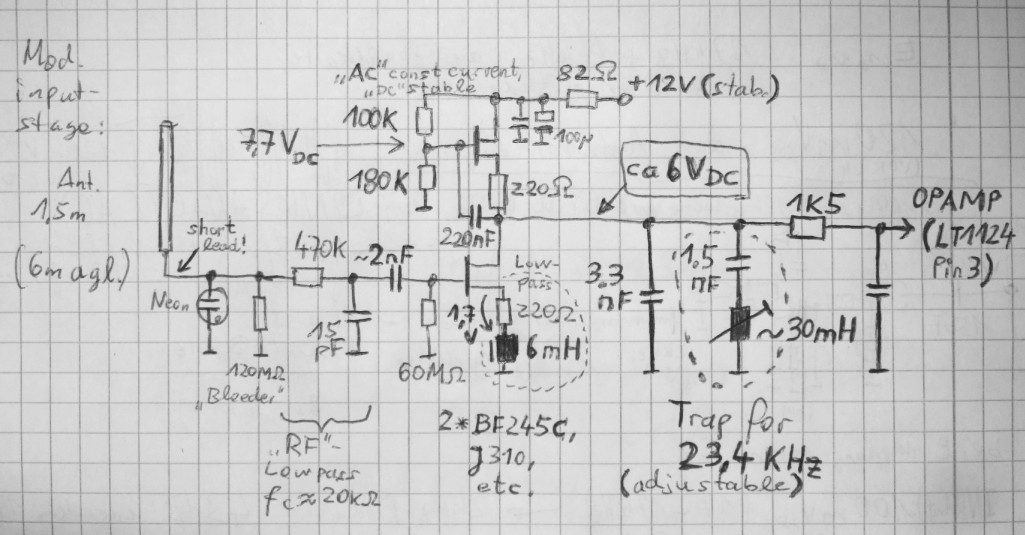 Mod.
input-
stage:
Ant.
1,5m
(6m agl.)
short
lead!
Neon
120MΩ
"Bleeder"
470K
15
pF
"RF"-
Lowpass
fc≈20kΩ
~2nF
60MΩ
"AC" const current,
"DC" stable
7,7 VDC
100K
180K
82Ω
+12V (stab.)
100µ
220Ω
220nF
ca 6VDC
Low-
pass
220Ω
1,7
V
6mH
2*BF245C,
J310,
etc.
3.3
nF
1.5
nF
~30mH
Trap for
23,4 KHz
(adjustable)
1K5
OPAMP
(LT1124
Pin3)